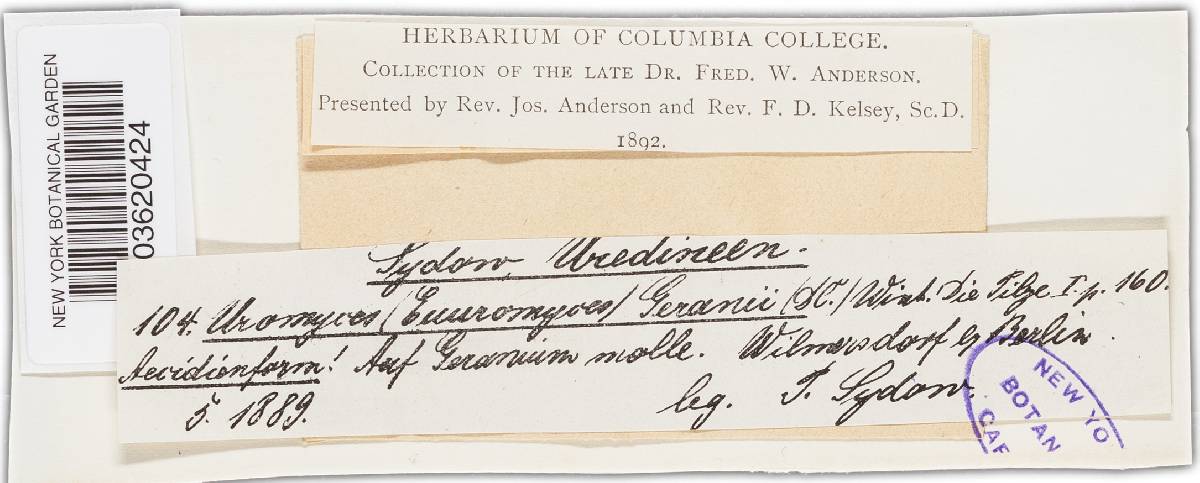 HERBARIUM OF COLUMBIA COLLEGE.
COLLECTION OF THE LATE DR. FRED. W. ANDERSON.
Presented by Rev. Jos. Anderson and Rev. F. D. Kelsey, Sc.D.
1892.
NEW YORK BOTANICAL GARDEN
03620424
Sydow, Uredineen.
104. Uromyces (Euuromyces) Geranii (DC.) Wint. Die Pilze I. p. 160.
Aecidienform! Auf Geranium molle. Wilmersdorf b/ Berlin.
5. 1889. leg. P. Sydow.
NEW YO
BOTAN
GAR